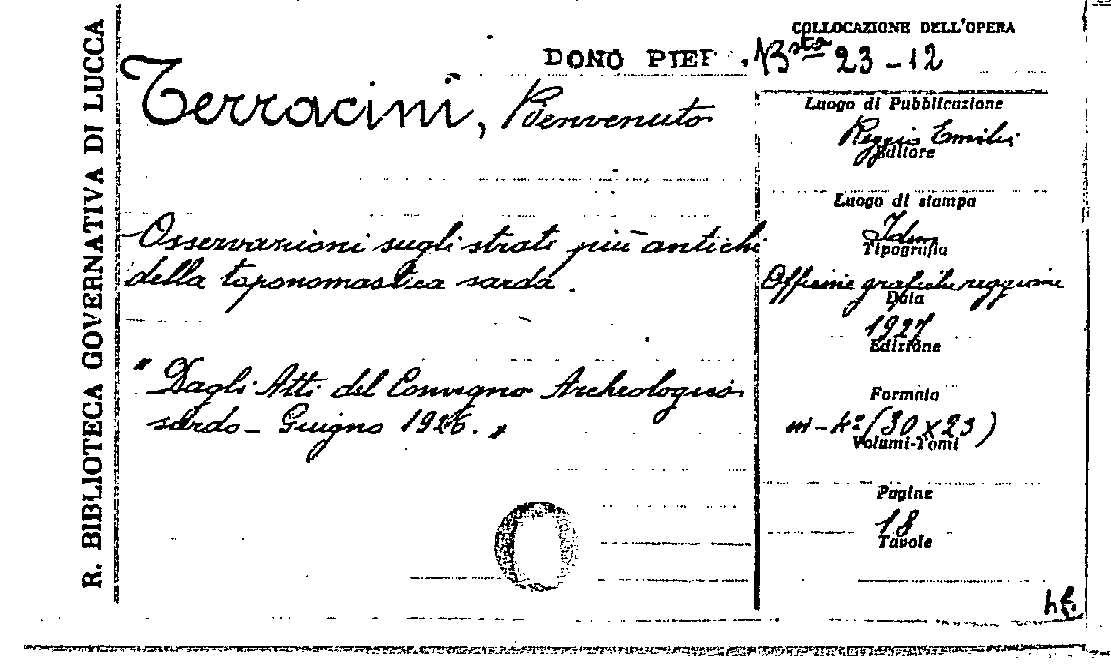 R. BIBLIOTECA GOVERNATIVA DI LUCCA
COLLOCAZIONE DELL'OPERA
DONO PIEF. Bsta 23-12
Terracini, Benvenuto
Luogo di Pubblicazione
Reggio Emilia
Editore
Luogo di stampa
Idem
Tipografia
Officine grafiche reggiane
Data
1927
Edizione
Formato
in-4º (30 x 23)
Volumi-Tomi
Pagine
18
Tavole
Osservazioni sugli strati più antichi
della toponomastica sarda.
"Dagli Atti del Convegno Archeologico
sardo - Giugno 1926."